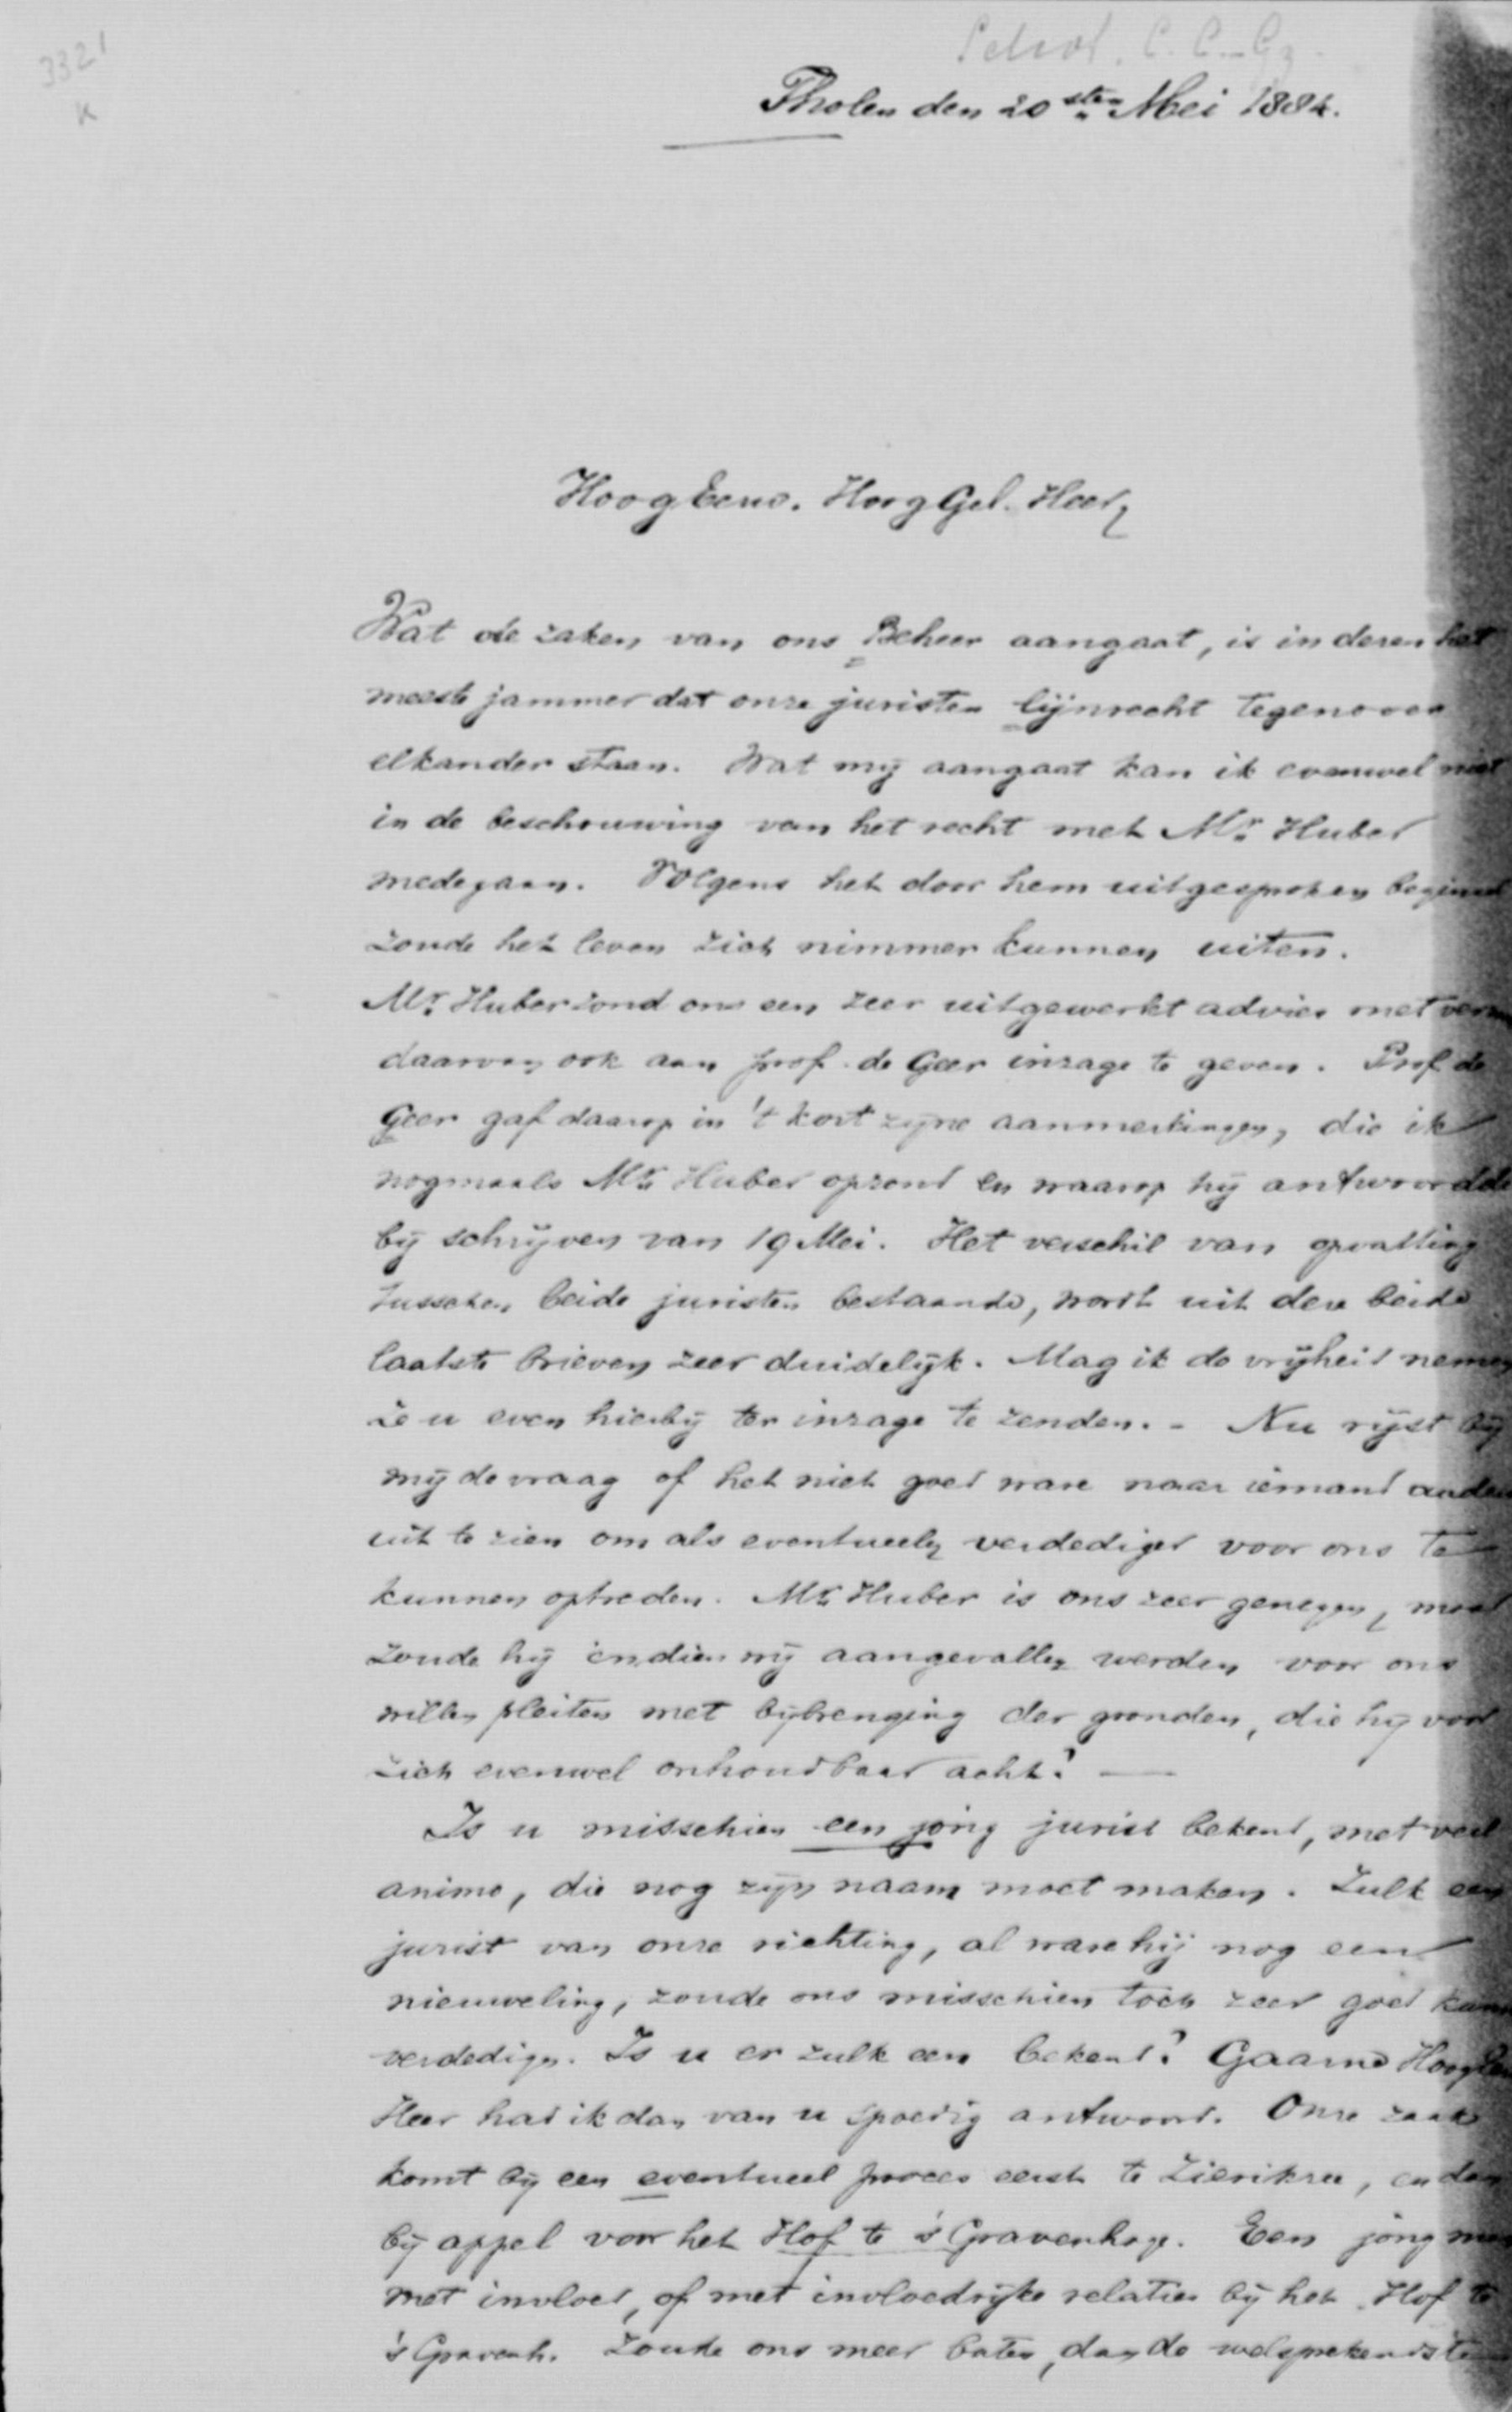 3321
K
Tholen den 20sten Mei 1884.
HoogEerw. HoogGel. Heer,
Wat de zaken van ons Beheer aangaat, is in dezen het
meest jammer dat onze juristen lijnrecht tegenover
elkander staan. Wat mij aangaat kan ik evenwel niet
in de beschouwing van het recht met Mr. Huber
medegaan. Volgens het door hem uitgesproken beginsel
zoude het leven zich nimmer kunnen uiten.
Mr. Huber zond ons een zeer uitgewerkt advies met
daarvan ook aan prof. de Geer inzage te geven. Prof de
Geer gaf daarop in 't kort zijne aanmerkingen, die ik
nogmaals Mr. Huber opzond en waarop hij antwoordde
bij schrijven van 19 Mei. Het verschil van opvatting
tusschen beide juristen bestaande, wordt uit deze beide
laatste brieven zeer duidelijk. Mag ik de vrijheid nemen
ze u even hierbij ter inzage te zenden. - Nu rijst bij
mij de vraag of het niet goed ware naar iemand anders
uit te zien om als eventueel verdediger voor ons te
kunnen optreden. Mr. Huber is ons zeer genegen, maar
zoude hij indien wij aangevallen werden voor ons
willen pleiten met bijbrenging der gronden, die hij voor
zich evenwel onhoudbaar acht? —
Is u misschien een jong jurist bekend, met veel
animo, die nog zijn naam moet maken. Zulk een
jurist van onze richting, al ware hij nog een
nieuweling, zoude ons misschien toch zeer goed
verdedigen. Is u er zulk een bekend? Gaarne
Heer had ik dan van u spoedig antwoord. Onze zaak
komt bij een eventueel proces eerst te Zierikzee, en dan
bij appel voor het Hof te 's Gravenhage. Een jong man
met invloed, of met invloedrijke relaties bij het Hof te
's Gravenh. zoude ons meer baten, dan de welsprekendste